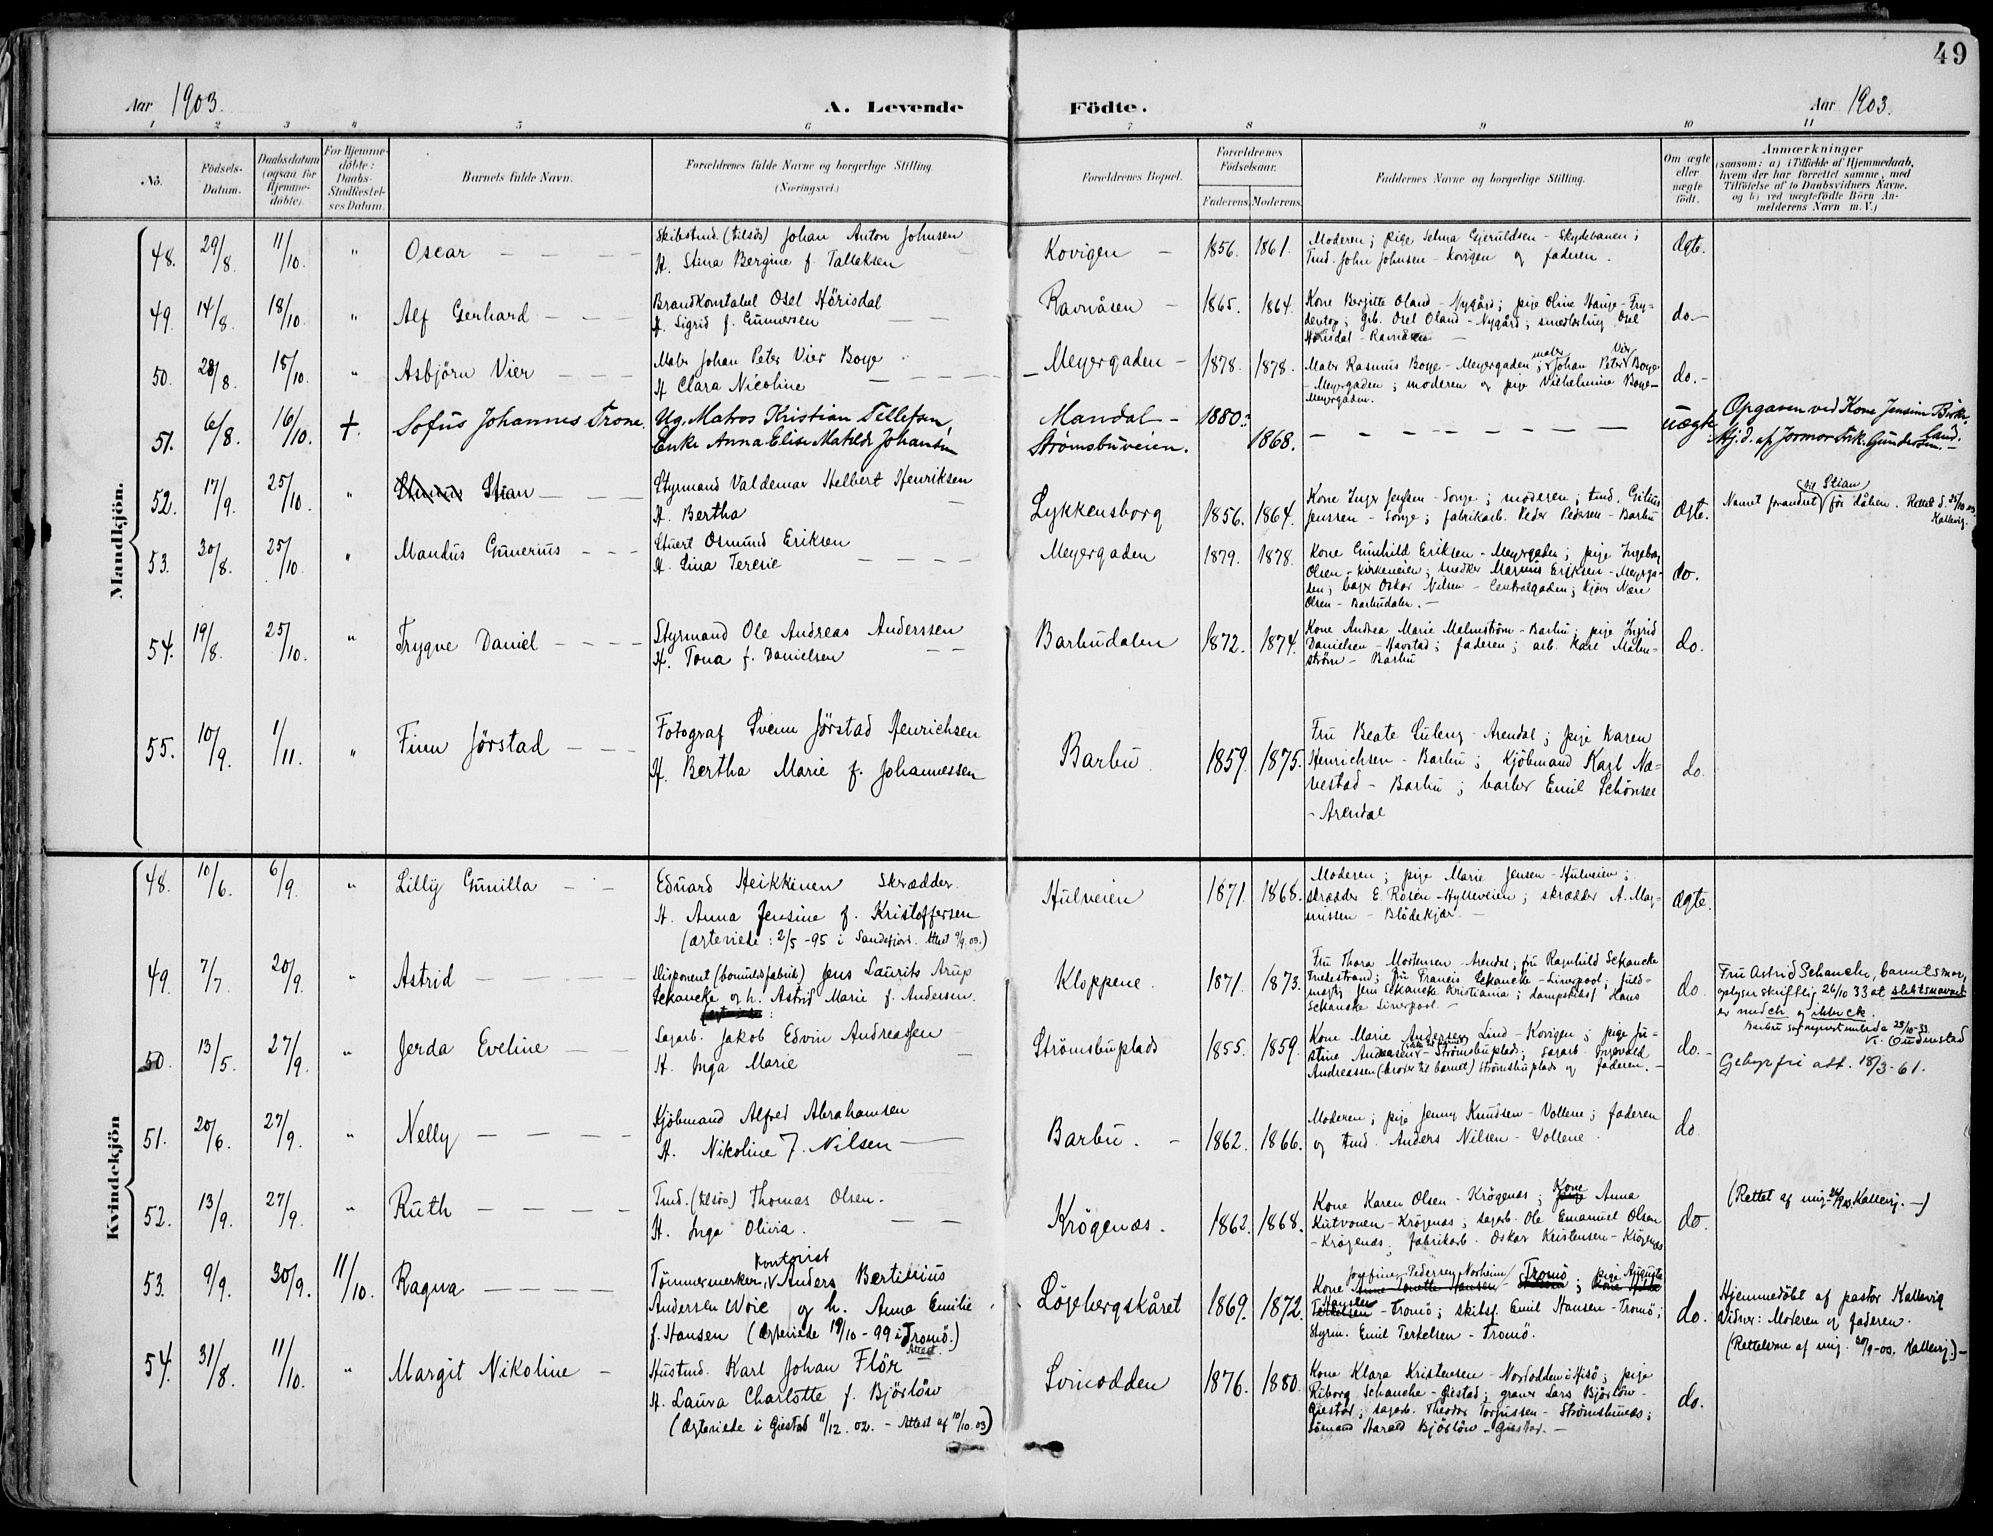 49
Aar 1903.
A. Levende
Födte.
Aar 1903.
1 2 3 4 5 6 7 8 9 10 11
No.
Födsels-
Datum.
Daabsdatum
(ogsaa for
Hjemme-
döbte).
For Hjemme-
döbte:
Daabs-
Stadfæstel-
ses Datum.
Barnets fulde Navn.
Forældrenes fulde Navne og borgerlige Stilling
(Næringsvei.)
Forældrenes Bopæl.
Forældrenes
Fødselsaar.
Faderens. Moderens.
Faddernes Navne og borgerlige Stilling.
Om ægte
eller
uægte
födt.
Anmærkninger
(saasom: a) i Tilfælde af Hjemmedaab,
hvem der har forrettet samme, med
Tilföielse af to Daabsvidners Navne.
og b) ved uægtefödte Börn An-
melderens Navn m. V.)
Mandkjön.
48. 29/8. 11/10. " Oscar
Skibstmd. (tilsös) Johan Anton Johnsen
H. Stina Bergine f. Talleksen
Kovigen 1856. 1861.
Moderen; pige Selma Gjeruldsen - Skydebanen;
Tmd. John Johnsen - Kovigen og faderen.
ægte.
49. 14/8. 18/10. " Alf Gerhard
Brandkonstabel Osel Hörisdal
H. Sigrid f. Gunnersen
Ravnåsen 1865. 1864.
Kone Bergitte Oland - Nygård; pige Oline Hauge - Fry-
dentop; grb. Osel Oland - Nygård; Osel
Hörisdal - Ravnåsen
do.
50. 28/8. 18/10. " Asbjörn Vier
Maler Johan Peter Vier Boye
H. Clara Nicoline
Meyergaden 1878. 1878.
Maler Rasmus Boye - Meyergaden; maler Johan Peter Vier Boye
- Meyergaden; moderen og pige Vilhelmine Boye -
Meyergaden.
do.
51. 6/8. 16/10. +. Sofus Johannes Trone
Ug. Matros Kristian Tellefsen,
Enke Anna Elise Matilde Johansen
Mandal -
Strømsbuveien.
1880.
1868.
uægte
Opgaven ved Kone Jensine Birke-
land.
Hj.d. af Jormor Frk. Gundersen.
52. 17/9. 25/10. " Stian
Styrmand Valdemar Helbert Henriksen
H. Bertha
Lykkensborg 1856. 1864.
Kone Inger Jensen - Songe; moderen; tmd.
Jenssen - Songe; fabrikarb. Peder Pedersen - Barbu
ægte.
Navnet forandret til Stian før dåben. Rettet d. 25/10 03
Kallevig.
53. 30/8. 25/10. " Mandus Gunerius
Stuert Osmund Eriksen
H. Lina Teresie
Meyergaden 1879. 1878.
Kone Gunhild Eriksen - Meyergaden; pige Ingeborg
Olsen - Kirkeveien; snedker Marius Eriksen - Meyerga-
den; bager Oskar Nilsen - Centralgaden;
Olsen - Barbudalen.
do.
54. 19/8. 25/10. " Trygve Daniel
Styrmand Ole Andreas Anderssen
H. Tona f. Danielsen
Barbudalen 1872. 1874.
Kone Andrea Marie Malmström - Barbu; pige Ingrid
Danielsen - Havstad; faderen; arb. Karl Malm-
ström - Barbu
do.
55. 10/9. 1/11. " Finn Jörstad
Fotograf Svenn Jörstad Henrichsen
H. Bertha Marie f. Johannessen
Barbu 1859. 1875.
Fru Beate - Arendal; pige Karen
Henrichsen - Barbu; Kjöbmand Karl Næ-
vestad - Barbu; barber Emil Schönsee
- Arendal
do.
Kvindekjön
48. 10/6. 6/9. " Lilly Gunilla
Eduard Heikkinen Skrædder.
H. Anna Jensine f. Kristoffersen
(ægteviede: 2/5 -95 i Sandefjord. Attest 9/9. 03.)
Hulveien 1871. 1868.
Moderen; pige Marie Jensen - Hulveien;
skrædder E. Rosén - Hylleveien; skrædder A. Mag-
nussen - Blödekjær
ægte.
49. 7/7. 20/9. " Astrid
Disponent (bomuldsfabrik) Jens Laurits Arup
Schancke og h. Astrid Marie f. Andersen.
Kloppene. 1871. 1873.
Fru Thora Mortensen - Arendal; fru Ragnhild Schancke
Tvedestrand; fru Francis Schancke - Liverpool; fuld-
mægtig Jens Schancke Kristiania; dampskibsf. Hans
Schancke Liverpool.
do.
Fru Astrid Schanche, barnets mor,
oplyser skriftlig 26/10 33 at slektsnavnet
er med ch og ikke ck.
Barbu sogneprestembede 28/10-33.
50. 13/5. 27/9. " Jerda Eveline
Sagarb. Jakob Edvin Andreassen
H. Inga Marie
Strömsbuplads 1855. 1859.
Kone Marie Andersen Lind - Kovigen; pige Ju-
stine Andreassen - Strömsbuplads; sagarb. Ingevald
Andreassen (broder til barnet) Strömsbuplads og faderen.
do.
Gebyrfri att. 18/3-61.
51. 20/6. 27/9. " Nelly
Kjöbmand Alfred Abrahamsen
H. Nikoline f. Nilsen
Barbu. 1862. 1866.
Moderen; pige Jenny Knudsen - Vollene; faderen
og tmd. Anders Nilsen - Vollene.
do
52. 13/9. 27/9. " Ruth
Tmd. (tilsös) Thomas Olsen.
H. Inga Olivia.
Krögenæs. 1862. 1868.
Kone Karen Olsen - Krögenæs; Kone Anna
Kutvonen - Krögenæs; sagarb. Ole Emanuel Olsen
- Krögenæs; fabrikarb. Oskar Kristensen - Krögenæs
do.
(Rettet af mig 24/9 03. Kallevig. -)
53. 9/9. 30/9. 11/10. Ragna
kontorist
Tömmermerker, Anders Bertinius
Andersen Woie og h. Anna Emilie
f. Hansen (Ægteviede 19/10 - 99 i Tromö.)
Attest.
Löjebergskåret 1869. 1872.
Kone Josefine Pedersen Norheim - Tromö; pige Auguste
Hansen - Tromö; skibsf. Emil Hansen - Tromö;
Styrm. Emil Terkelsen - Tromö.
do.
Hjemmedöbt af pastor Kallevig
Vidner: Moderen og faderen.
(Rettelserne af mig. 30/9-03. Kallevig.) -
54. 31/8. 11/10. " Margit Nikoline
Hustmd. Karl Johan Flör
H. Laura Charlotte f. Björlöw
(Ægteviede i Gjestad 11/12. 02. - Attest af 10/10. 03)
Svinodden 1876. 1880.
Kone Klara Kristensen - Nordodden i Hisö; pige
Riborg Schanche - Gjestad; graver Lars Björlöw -
Gjestad; sagarb. Theodor Torjussen - Strömsbunæs;
Sömand Harald Björlöw - Gjestad. -
do.